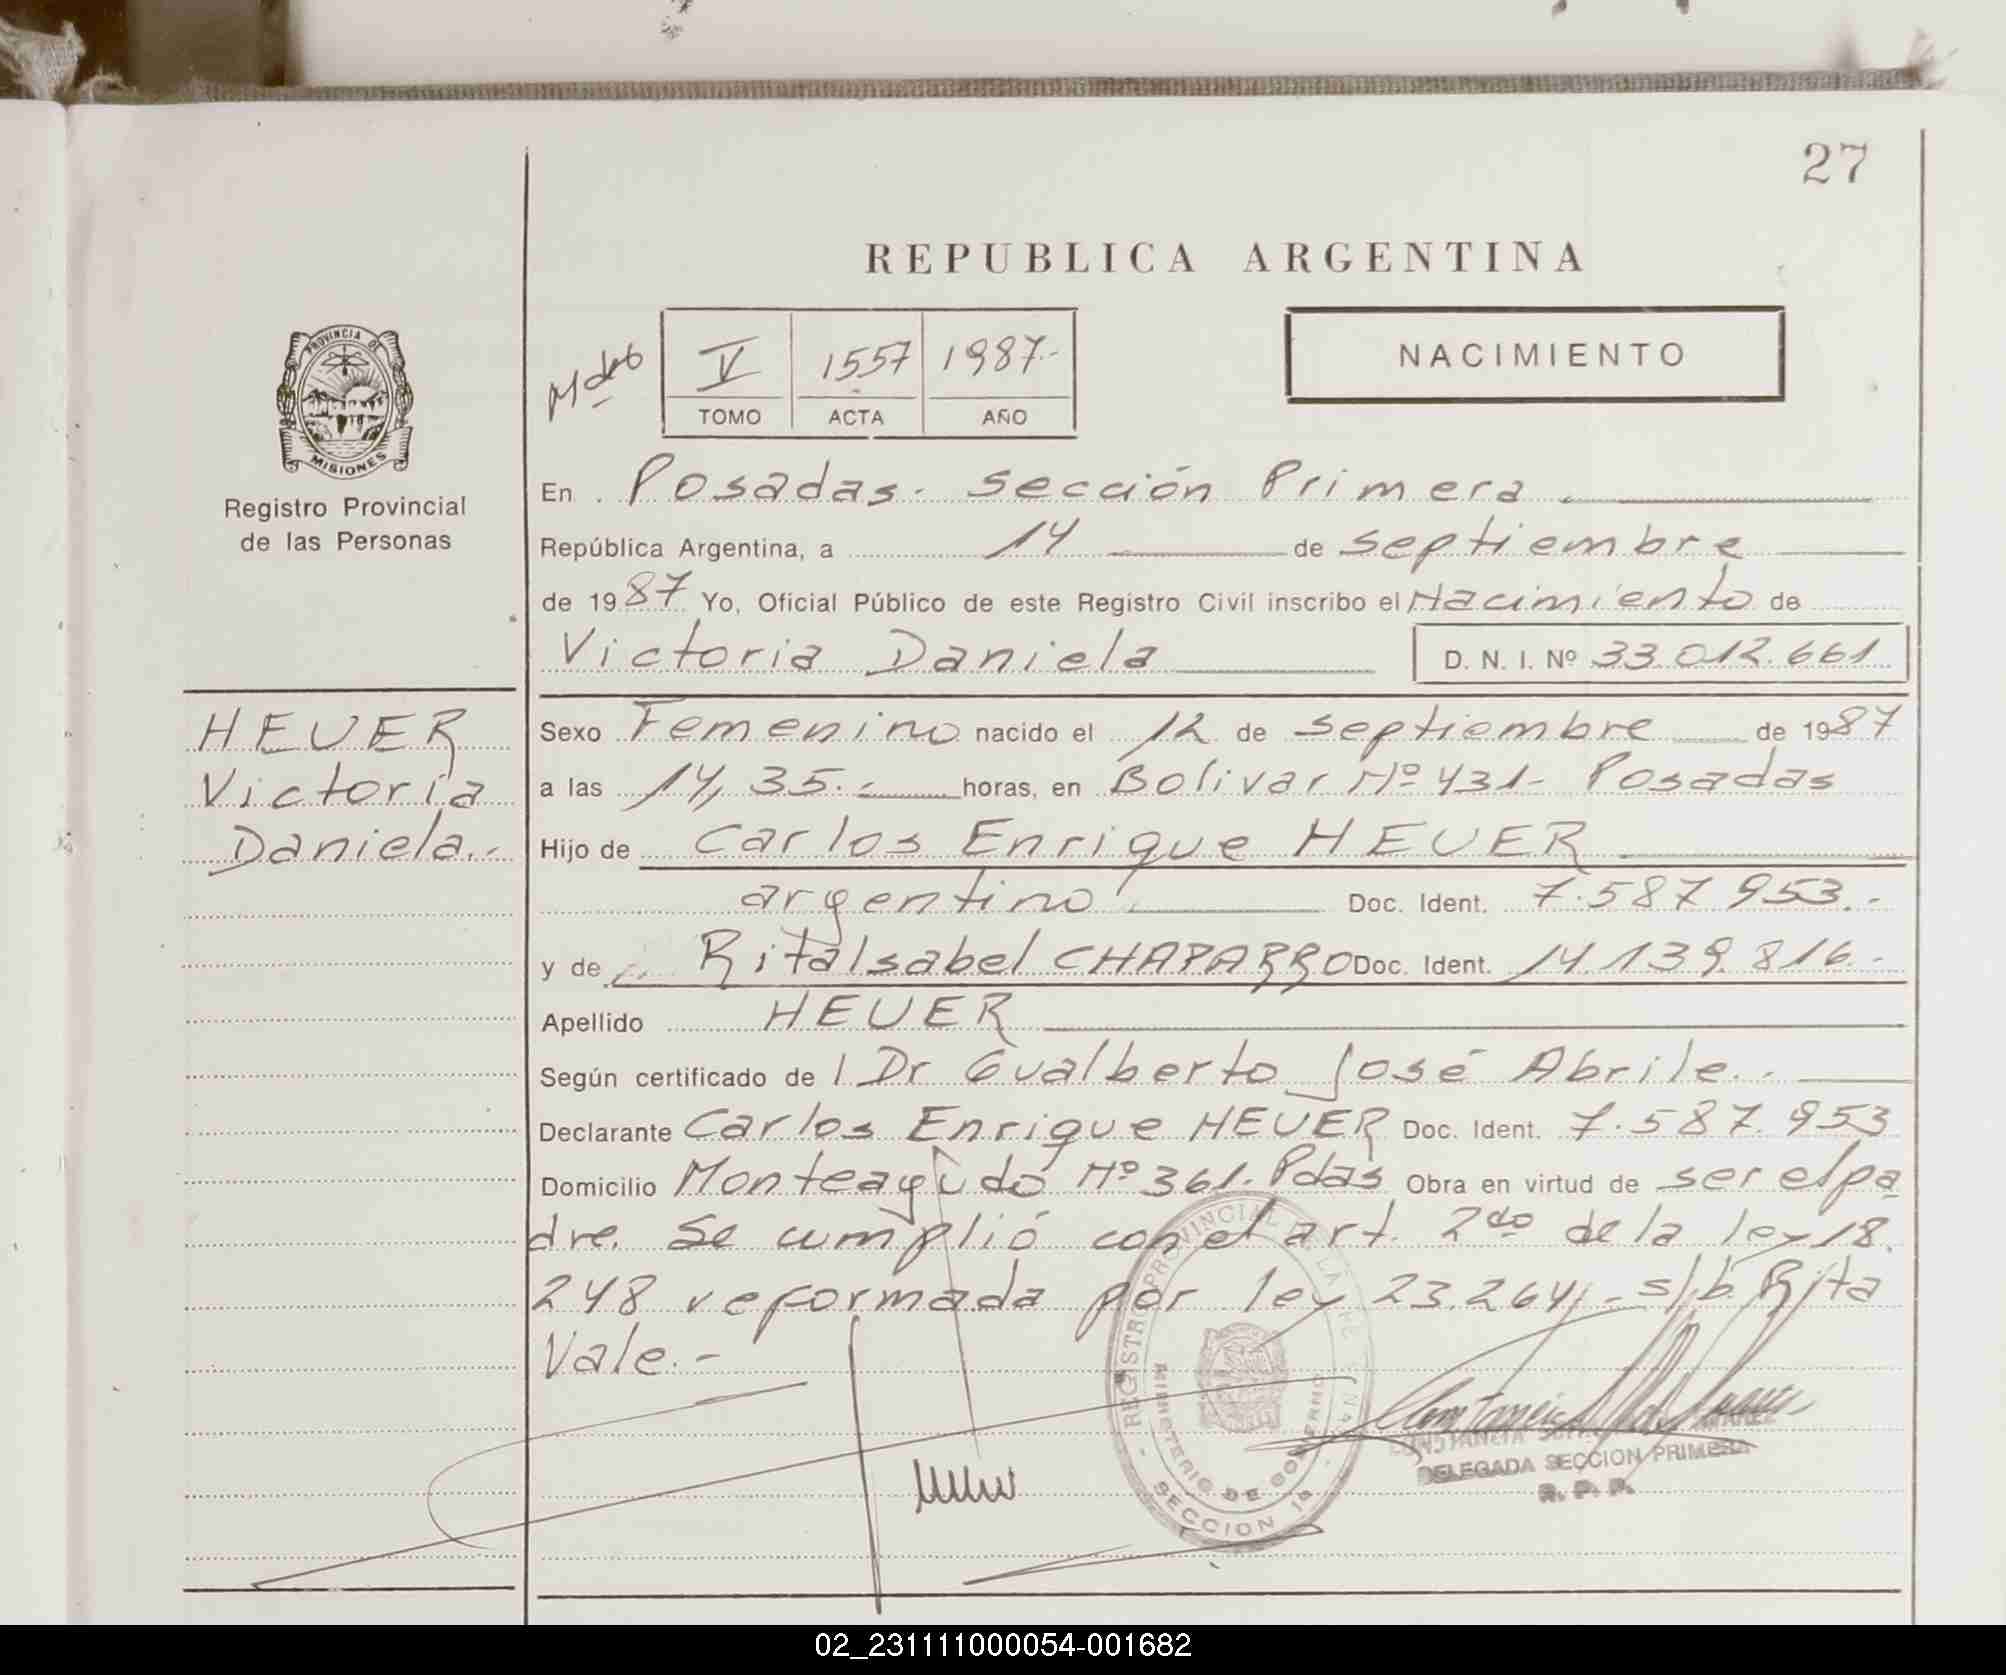 27
REPUBLICA ARGENTINA
PROVINCIA DE
MISIONES
Registro Provincial
de las Personas
V 1557 1987.-
TOMO ACTA AÑO
NACIMIENTO
En Posadas. sección Primera.
República Argentina, a 14 de septiembre
de 1987 Yo, Oficial Público de este Registro Civil inscribo el Nacimiento de
Victoria Daniela D. N. I. Nº 33.012.661
HEUER
Victoria
Daniela.-
Sexo Femenino nacido el 12 de septiembre de 1987
a las 14,35.- horas, en Bolivar Nº 431- Posadas
Hijo de Carlos Enrique HEUER
argentino Doc. Ident. 7.587.953.-
y de Rita Isabel CHAPARRO Doc. Ident. 14.139.816.-
Apellido HEUER
Según certificado de Dr Gualberto José Abrile.
Declarante Carlos Enrique HEUER Doc. Ident. 7.587.953
Domicilio Monteagudo Nº 361. Pdas Obra en virtud de ser el pa
dre. Se cumplió con el art. 2do de la ley 18.
248 reformada por ley 23.264,- s/b. Rita
Vale.-
REGISTRO PROVINCIAL DE LAS PERSONAS
MINISTERIO DE GOBIERNO
SECCION 1a
DELEGADA SECCION PRIMERA
R. P. P.
02_231111000054-001682